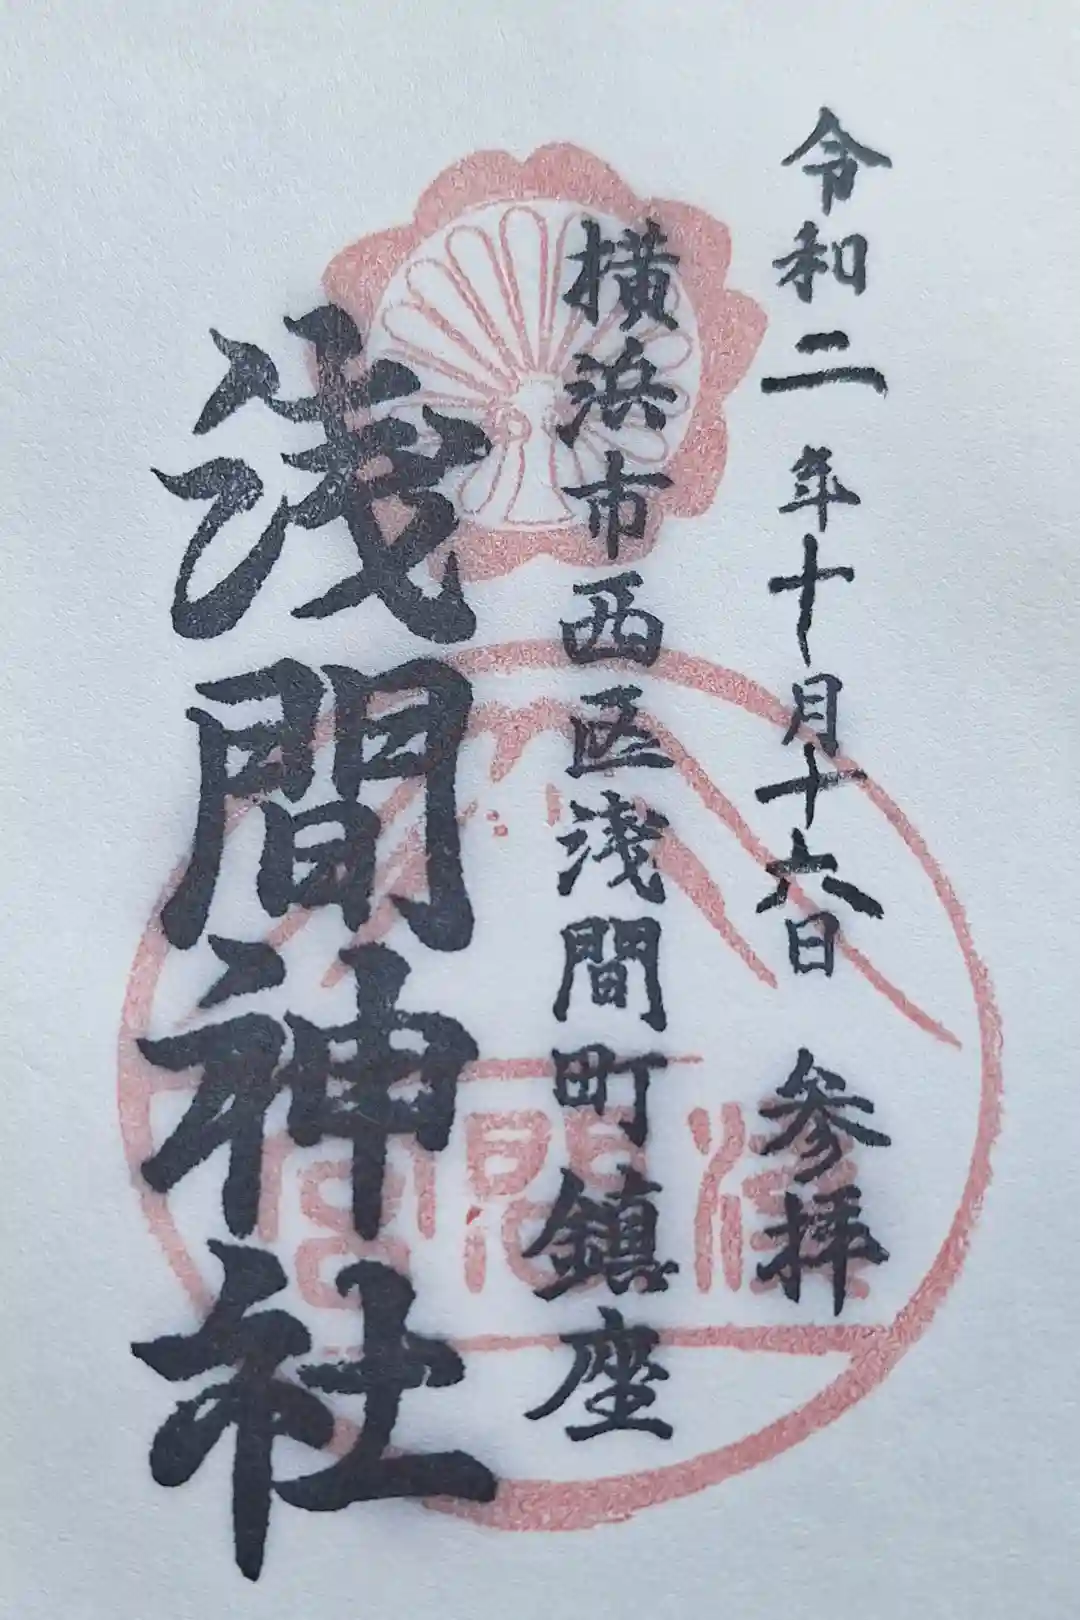 令和二年十月十六日 参拝
横浜市西区浅間町鎮座
浅間神社